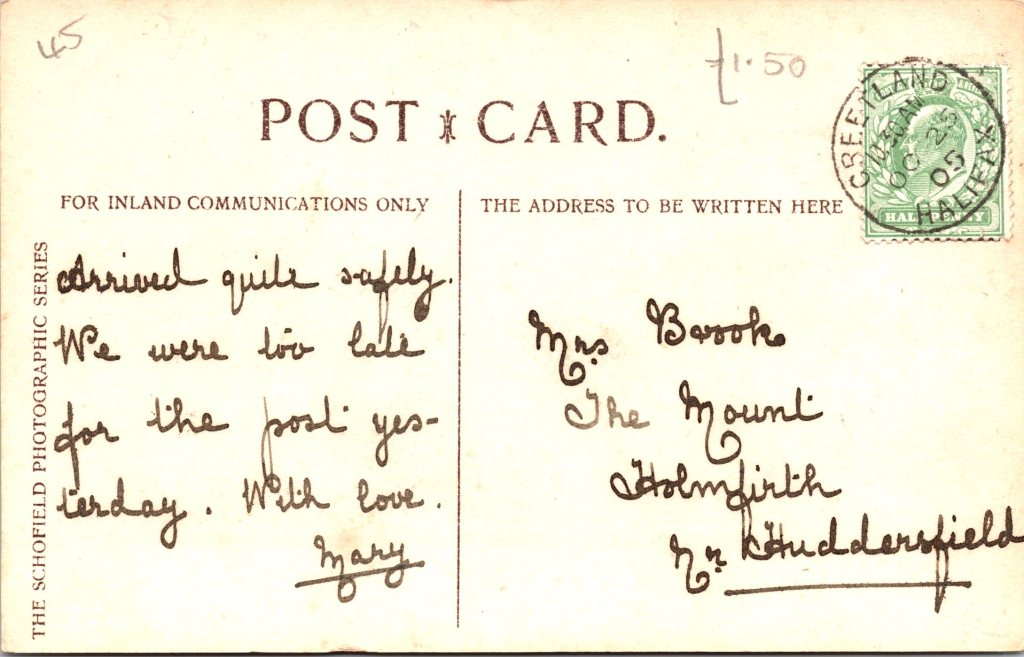 45
£1.50
POST CARD.
FOR INLAND COMMUNICATIONS ONLY
THE ADDRESS TO BE WRITTEN HERE
GREETLAND
10.30AM
OC 25
05
HALIFAX
HALFPENNY
THE SCHOFIELD PHOTOGRAPHIC SERIES
Arrived quite safely.
We were too late
for the post yes-
terday. With love.
Mary
Mrs Brook
The Mount
Holmfirth
Nr Huddersfield